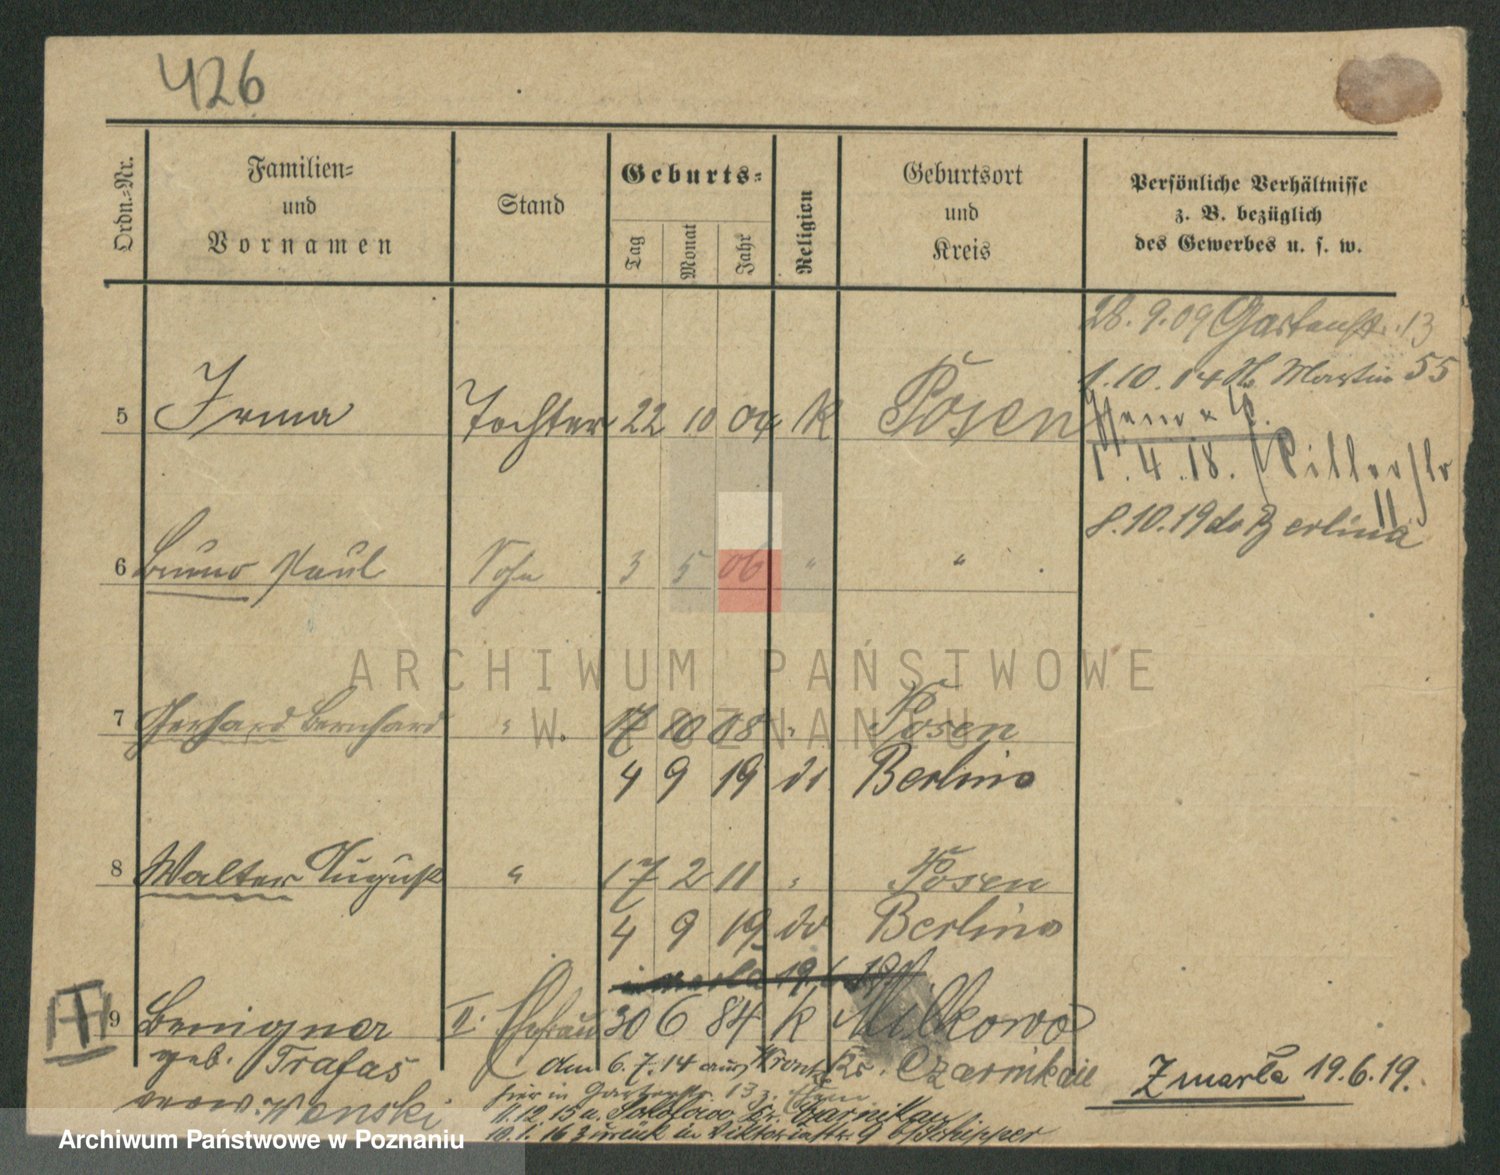 426
Ordn.-Nr.
Familien-
und
Vornamen
Stand
Geburts-
Tag
Monat
Jahr
Religion
Geburtsort
und
Kreis
Persönliche Verhältnisse
z. B. bezüglich
des Gewerbes u. s. w.
28. 9. 09 Gartenstr. 13
1. 10. 14 St. Martin 55
5 Irma Tochter 22 10 04 K Posen
1. 4. 18. Ritterstr
11
8. 10. 19 do Berlina
6 Bruno Paul Sohn 3 5 06 " "
ARCHIWUM PAŃSTWOWE
W POZNANIU
7 Gerhard Bernhard " 17 10 08 " Posen
4 9 19 do Berlino
8 Walter August " 17 2 11 " Posen
4 9 19 do Berlino
zmarla 19.6.19
9 Benigner II. Ehefrau 30 6 84 K Milkowo
geb. Trafas den 6.7.14 aus Kr. Czarnikau
verw. Wenski hier in Gartenstr. 13 z.
11.12.15 n. Sokolowo Kr. Czarnikau
10.1.16 zurück in Viktoriastr. 9 b/Schipper
Zmarła 19.6.19.
Archiwum Państwowe w Poznaniu